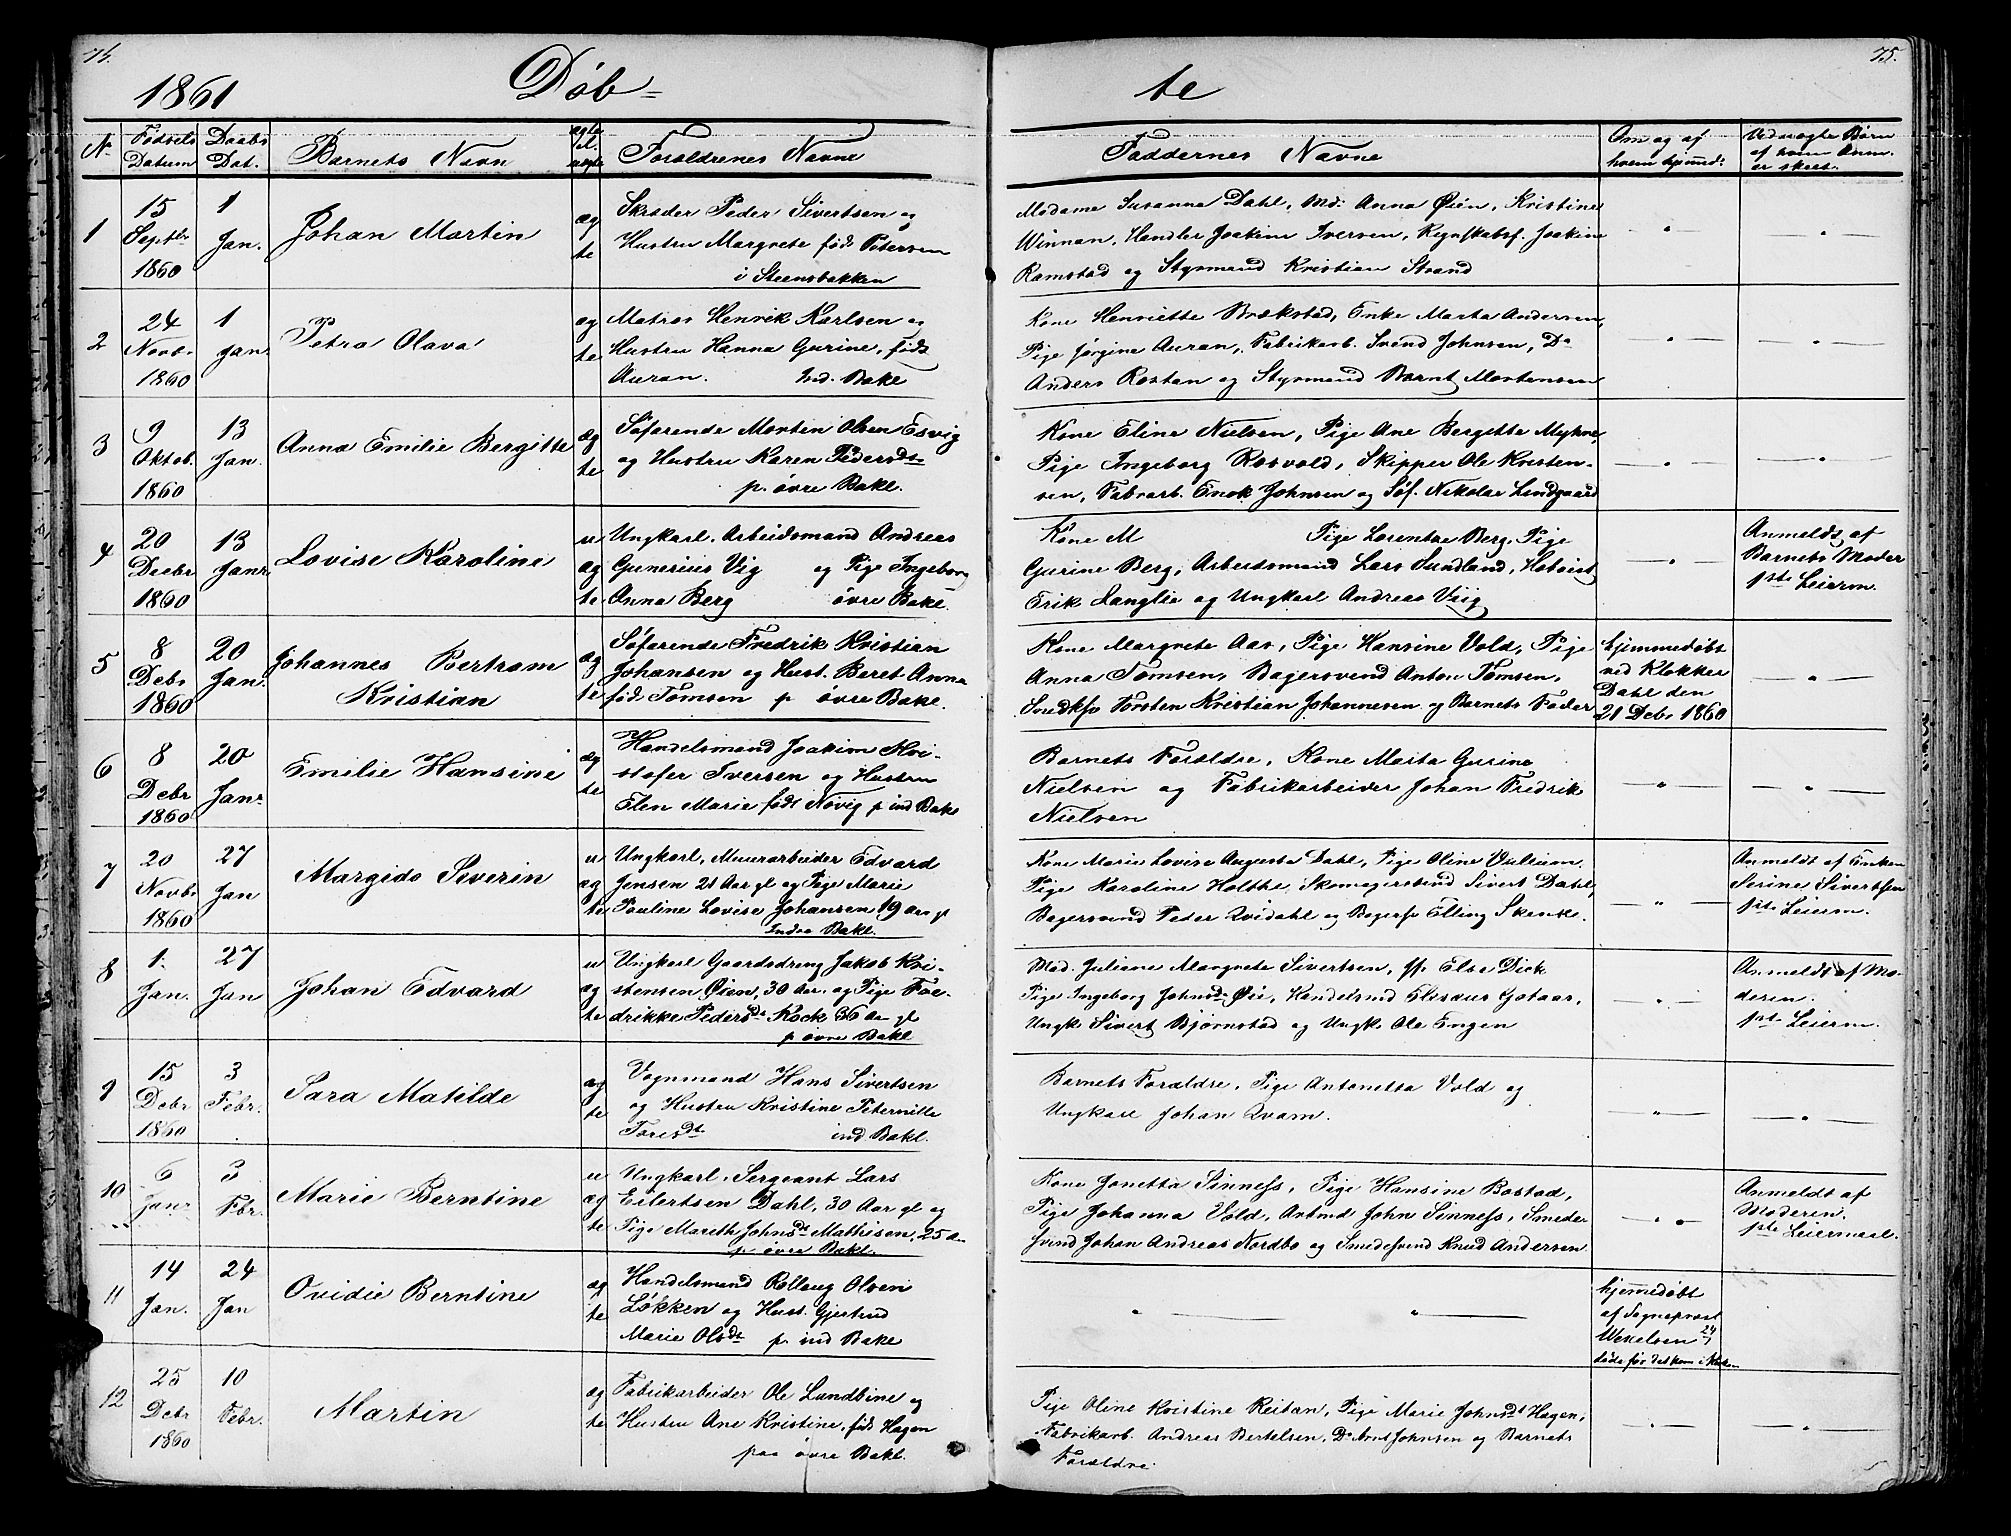 74.
1861
Döb=
te
75.
No
Fødsels Datum
Daabs Dat.
Barnets Navn
ægte el. uægte
Forældrenes Navne
Faddernes Navne
Om og af hvem hjemmed:
Udenægte Børn af hvem Anm. er skeet.
1
15 Septbr 1860
1 Jan.
Johan Martin
ægte
Skræder Peder Sivertsen og
Hustru Margrete født Petersen
i Steensbakken
Madame Susanna Dahl, Md: Anna Øien, Kristine
Winnan, Handler Joakim Iversen, Regnskabsf. Joakim
Ramstad og Styrmand Kristian Strand
2
24 Novb. 1860
1 Janr
Petra Olava
ægte
Matros Henrik Karlsen og
Hustru Hanna Gurine, født
Auran. Ind. Bakl
Kone Henriette Brækstad, Enke Marta Andersen,
Pige Jørgine Auran, Fabrikarb. Svend Johnsen, Do
Anders Rostan og Styrmand Bernt Mortensen
3
9 Oktob. 1860
13 Jan.
Anna Emilie Bergitte
ægte
Søfarende Morten Olsen Esvig
og Hustru Karen Pedersdt
p. övre Bakl.
Kone Eline Nielsen, Pige Ane Bergitte Myhre,
Pige Ingeborg Rosvold, Skipper Ole Kristen-
sen, Fabrarb. Enok Johnsen og Søf. Nikolai Lindgaard
4
20 Decbr 1860
13 Janr
Lovise Karoline
uægte
Ungkarl. Arbeidsmand Andreas
Gunerius Vig og Pige Ingeborg
Anna Berg övre Bakl.
Kone M Pige Lorentze Berg, Pige
Gurine Berg, Arbeidsmand Lars Sundland,
Erik Langlie og Ungkarl Andreas Viig
Anmeldt af
Barnets Moder
1ste Leierm.
5
8 Debr 1860
20 Jan.
Johannes Bertram
Kristian
ægte
Søfarende Fredrik Kristian
Johansen og Hust. Beret Anna
fød. Tomsen p övre Bakl.
Kone Margrete Aas, Pige Hansine Vold, Pige
Anna Tomsen, Bagersvend Anton Tomsen,
Snedksv Torsten Kristian Johannesen og Barnets Fader
hjemmedøbt
ved Klokker
Dahl den
21 Debr 1860
6
8 Debr 1860
20 Janr
Emilie Hansine
ægte
Handelsmand Joakim Kri-
stofer Iversen og Hustru
Elen Marie født Növig p ind Bakl
Barnets Forældre, Kone Marta Gurine
Nielsen og Fabrikarbeider Johan Fredrik
Nielsen
7
20 Novbr 1860
27 Jan
Margido Severin
uægte
Ungkarl, Muurarbeider Edvard
Jensen 21 Aar gl og Pige Marie
Pauline Lovise Johansen 19 Aar gl
Indre Bakl.
Kone Marie Lovise Augusta Dahl, Pige Oline Vullum
Pige Karoline Holthe, Skomagersvend Sivert Dahl,
Bagersvend Peder Qvidahl og Bagersv Elling Skenke.
Anmeldt af Enken
Serine Sivertsen
1ste Leierm.
8
1. Jan.
27 Jan
Johan Edvard
uægte
Ungkarl Gaardsdreng Jakob Kri-
stensen Øien, 30 Aar. og Pige Fre-
drikke Pedersdt Kock 36 Aar gl
p övre Bakl
Mad. Juliane Margrete Sivertsen, Else Dick
Pige Ingeborg Johnsdt Øie, Handelsmd Elisæus Gotaas,
Ungk Sivert Bjørnstad og Ungk. Ole Engen
Anmeldt af Mo-
deren.
1ste Leierm.
9
15 Debr 1860
3 Febr.
Sara Matilde
ægte
Vognmand Hans Sivertsen
og Hustru Kristine Peternille
Toresdt ind Bakl.
Barnets Forældre, Pige Antonetta Vold og
Ungkarl Johan Qvam.
10
6 Janr
3 Fbr.
Marie Berntine
uægte
Ungkarl, Sergeant Lars
Eilertsen Dahl, 30 Aar gl og
Pige Mareth Johnsdt Mathisen, 25 A
p övre Bakl.
Kone Janetta Sinness, Pige Hansine Bostad,
Pige Johanna Vold, Arbmd John Sinness, Smeder
svend Johan Andreas Nordbo og Smedesvend Knud Andersen
Anmeldt af
Moderen.
1ste Leiermaal.
11
14 Jan.
24 Jan
Ovidie Berntine
ægte
Handelsmand Rollaug Olsen
Løkken og Hust. Gjertrud
Marie Olsdt p. ind Bakl
hjemedøbt
af Sogneprest
Wexelsen 24/1
døde før det kom i Kirk
12
25 Debr 1860
10 Febr.
Martin
ægte
Fabrikarbeider Ole Lundbine og
Hustru Ane Kristine, fød Hagen
paa övre Bakl.
Pige Oline Kristine Reitan, Pige Marie Johnsdt Hagen,
Fabrikarb. Andreas Bertelsen, Do Arnt Johnsen og Barnets
Forældre.